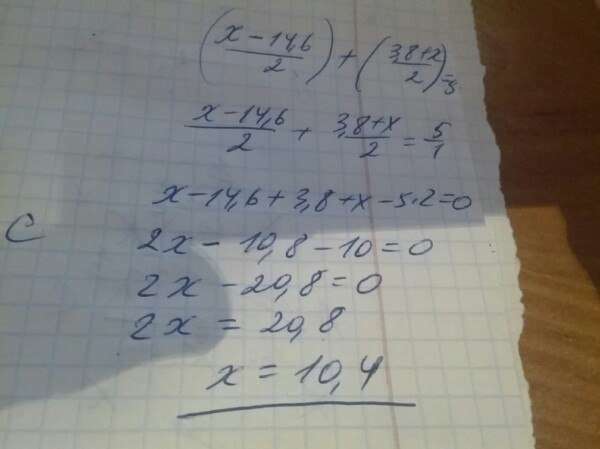 (x-14,6/2) + (3,8+x/2) = 5
x-14,6/2 + 3,8+x/2 = 5/1
x-14,6+3,8+x-5·2=0
C
2x-10,8-10=0
2x-20,8=0
2x=20,8
x=10,4